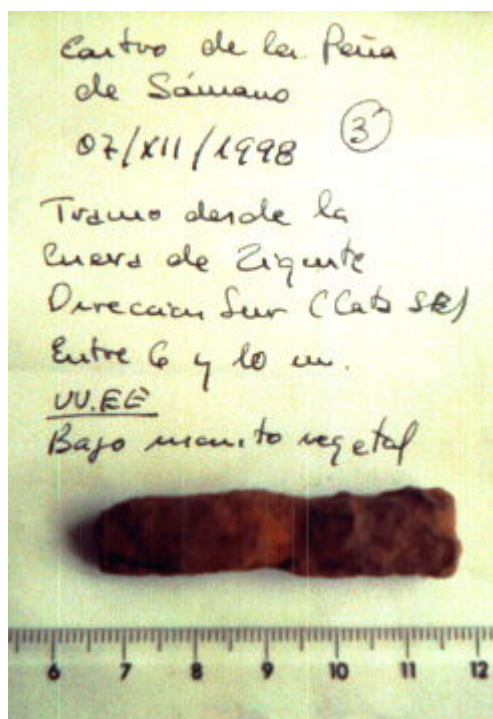 Castro de la Peña
de Sámano
07/XII/1998 3
Tramo desde la
Cueva de Ziguste
Dirección Sur (Cata SE)
Entre 6 y 10 m.
UU.EE
Bajo manto vegetal
6 7 8 9 10 11 12